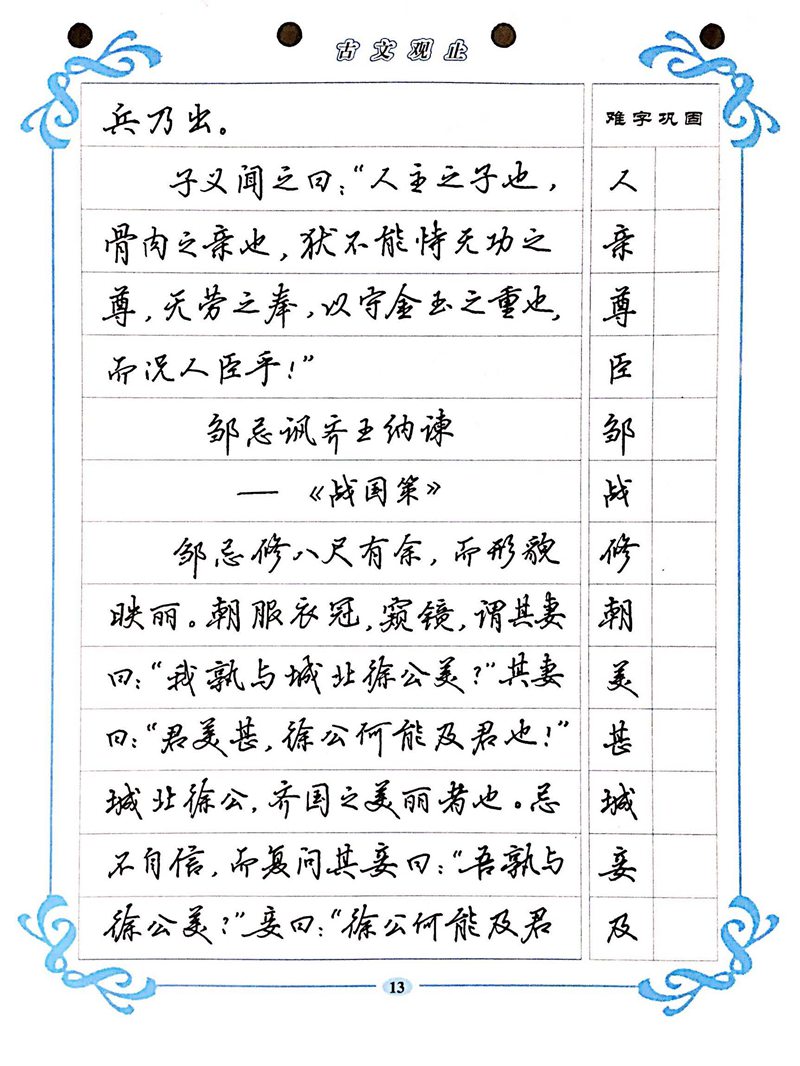 古文观止
兵乃出。
难字巩固
子义闻之曰：“人主之子也，
人
骨肉之亲也，犹不能恃无功之
亲
尊，无劳之奉，以守金玉之重也，
尊
而况人臣乎！”
臣
邹忌讽齐王纳谏
邹
—《战国策》
战
邹忌修八尺有余，而形貌
修
昳丽。朝服衣冠，窥镜，谓其妻
朝
曰：“我孰与城北徐公美？”其妻
美
曰：“君美甚，徐公何能及君也！”
甚
城北徐公，齐国之美丽者也。忌
城
不自信，而复问其妾曰：“吾孰与
妾
徐公美？”妾曰：“徐公何能及君
及
13